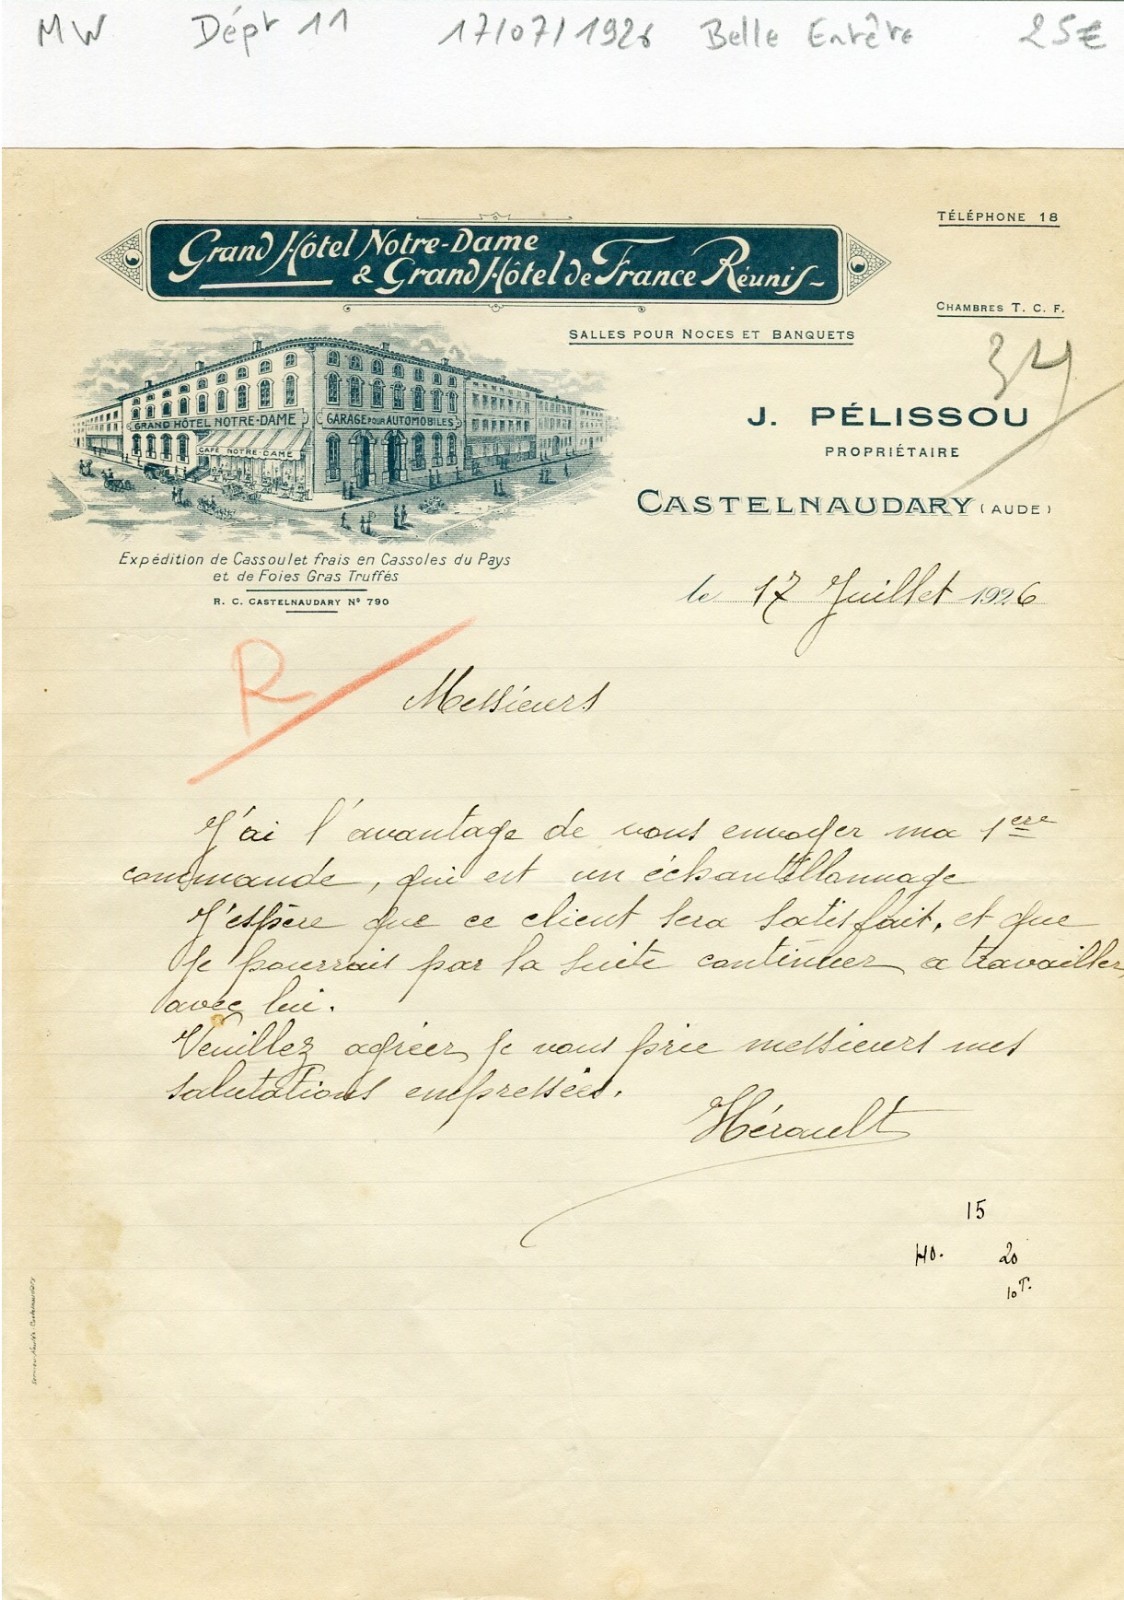 MW Dépt 11 17/07/1926 Belle Entête 25€
Grand Hôtel Notre-Dame
& Grand Hôtel de France Réunis
TÉLÉPHONE 18
CHAMBRES T. C. F.
SALLES POUR NOCES ET BANQUETS
34
GRAND HÔTEL NOTRE-DAME
GARAGE POUR AUTOMOBILES
CAFÉ NOTRE-DAME
J. PÉLISSOU
PROPRIÉTAIRE
CASTELNAUDARY (AUDE)
Expédition de Cassoulet frais en Cassoles du Pays
et de Foies Gras Truffés
R. C. CASTELNAUDARY N° 790
le 17 Juillet 1926
R
Messieurs
J'ai l'avantage de vous envoyer ma 1ere
commande, qui est un échantillonnage
J'espère que ce client sera satisfait, et que
je pourrais par la suite continuer a travailler
avec lui.
Veuillez agréer, je vous prie messieurs mes
salutations empressées.
Hérault
15
HO. 20
10T.